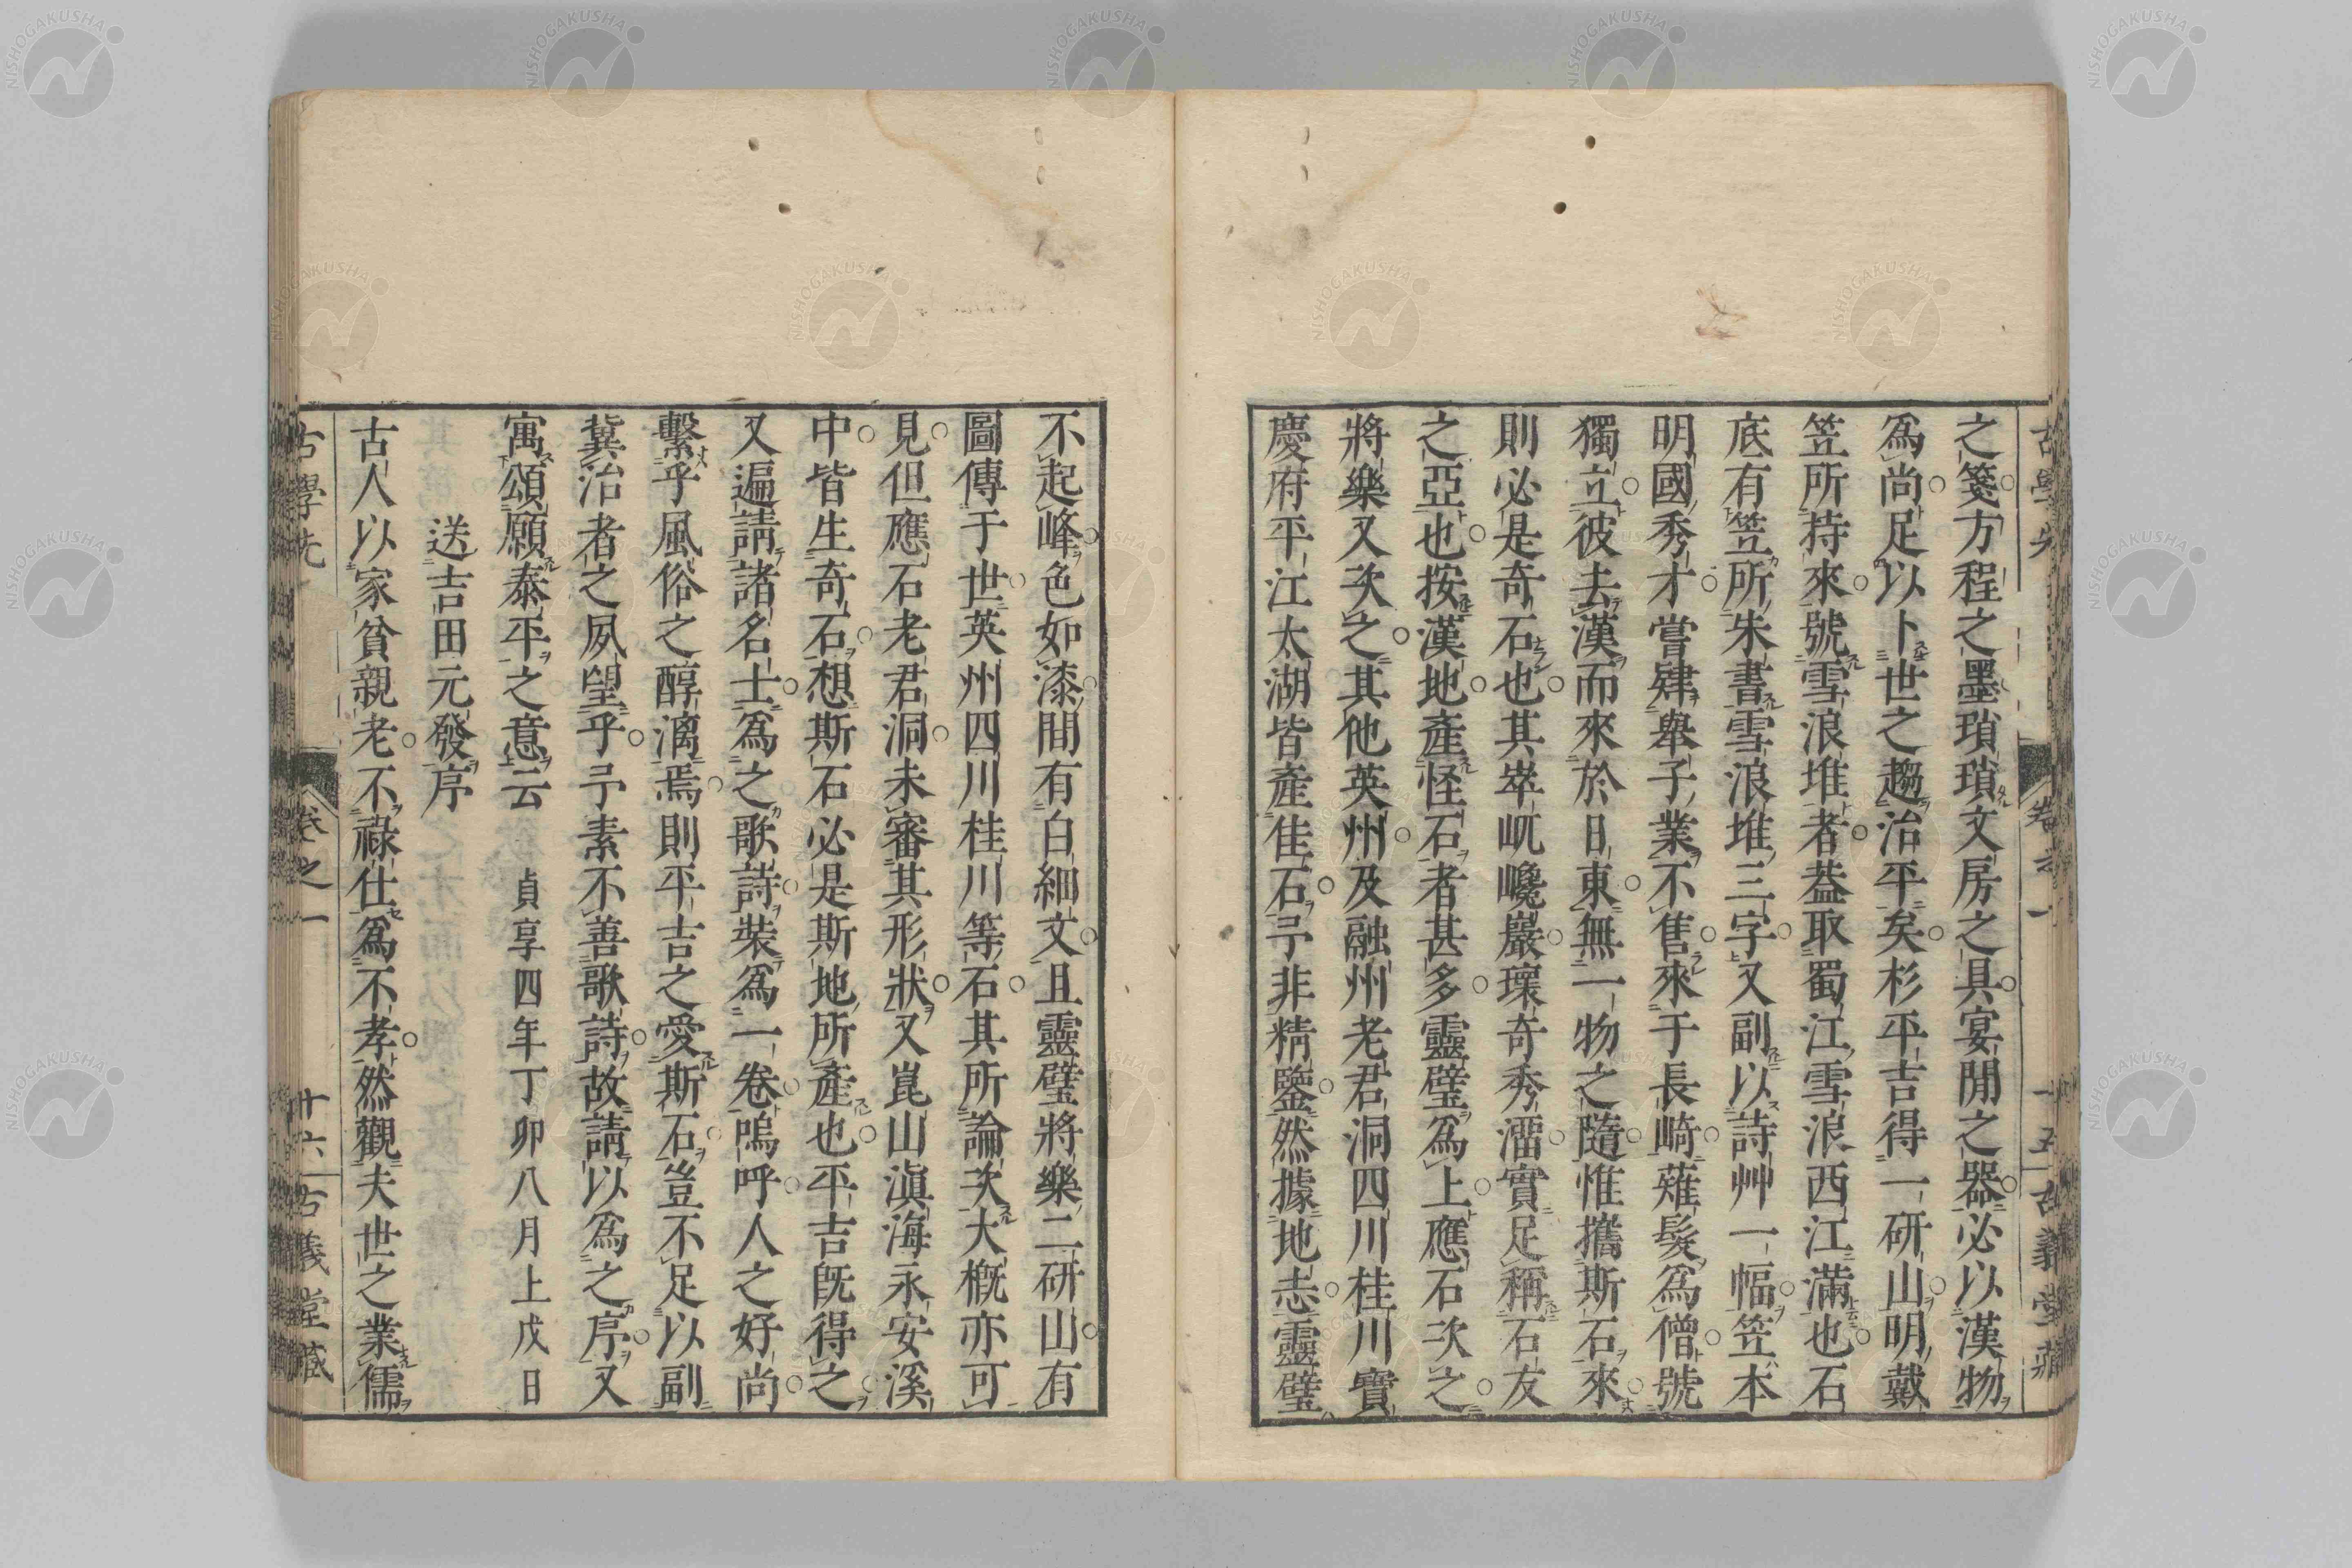 之箋方程之墨瑣瑣文房之具宴閒之器必以漢物
爲尚足以卜世之趨治平矣杉平吉得一研山明戴
笠所持來號雪浪堆者葢取蜀江雪浪西江滿也石
底有笠所朱書雪浪堆三字又副以詩艸一幅笠本
明國秀才嘗肄舉子業不售來于長崎薙髮爲僧號
獨立彼去漢而來於日東無一物之隨惟攜斯石來
則必是奇石也其崒屼巉巖瓌奇秀濡實足稱石友
之亞也按漢地產怪石者甚多靈璧爲上應石次之
將樂又次之其他英州及融州老君洞四川桂川寶
慶府平江太湖皆產佳石予非精鑒然據地志靈璧
不起峰色如漆間有白細文且靈璧將樂二研山有
圖傳于世英州四川桂川等石其所論次大概亦可
見但應石老君洞未審其形狀又崑山滇海永安溪
中皆生奇石想斯石必是斯地所產也平吉既得之
又遍請諸名士爲之歌詩裝爲一卷嗚呼人之好尚
繫乎風俗之醇漓焉則平吉之愛斯石豈不足以副
冀治者之夙望乎予素不善歌詩故請以爲之序又
寓頌願泰平之意云 貞享四年丁卯八月上戊日
送吉田元發序
古人以家貧親老不祿仕爲不孝然觀夫世之業儒
古學先
卷之一
十六
古義堂藏